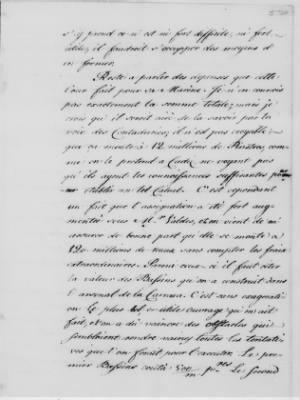 s'y prend ce n'est ni fort difficile, ni fort
il faudroit s'occupper des moyens d'en
former.
Reste a parler des depenses que cette
Cour fait pour sa Marine. Je n'en connois
pas exactement la somme totale, mais je
crois qu'il seroit aisé de la savoir par la
voie des Contadurias, il n'est pas croyable
que ca monte à 12 millions de Piastres, com-
me on le pretend a Cadiz ne voyant pas
qu'ils ayent les connoissances suffisantes pour
etablir un tel Calcul. C'est cependant
un fait que l'assignation a été fort aug-
mentée sous Mr. Valdes, et on vient de m'
assurer de bonne part qu'elle se monte à
120 millions de reaux sans compter les fraix
extraordinaires. Parmi ceux ci il faut citer
la valeur des Bassins qu'on a construit dans
l'arsenal de la Carraca. C'est sans exagerati-
on le plus bel ouvrage qu'on ait
fait, et on a du vaincre des obstacles qui
sembloient rendre vaines toutes les tentati-
ves que l'on feroit pour l'executer. Le pre-
mier Bassin couta Le second